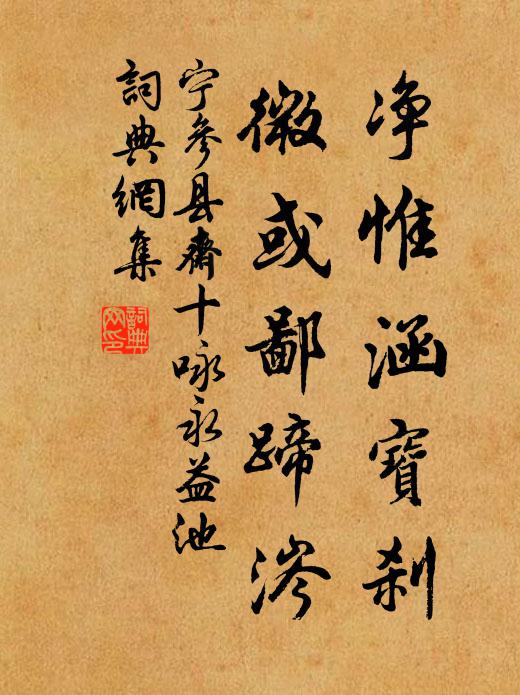 净惟涵寶刹
微或鄙蹄涔
宁參县齋十咏永益池
詞典網集
詞典網印